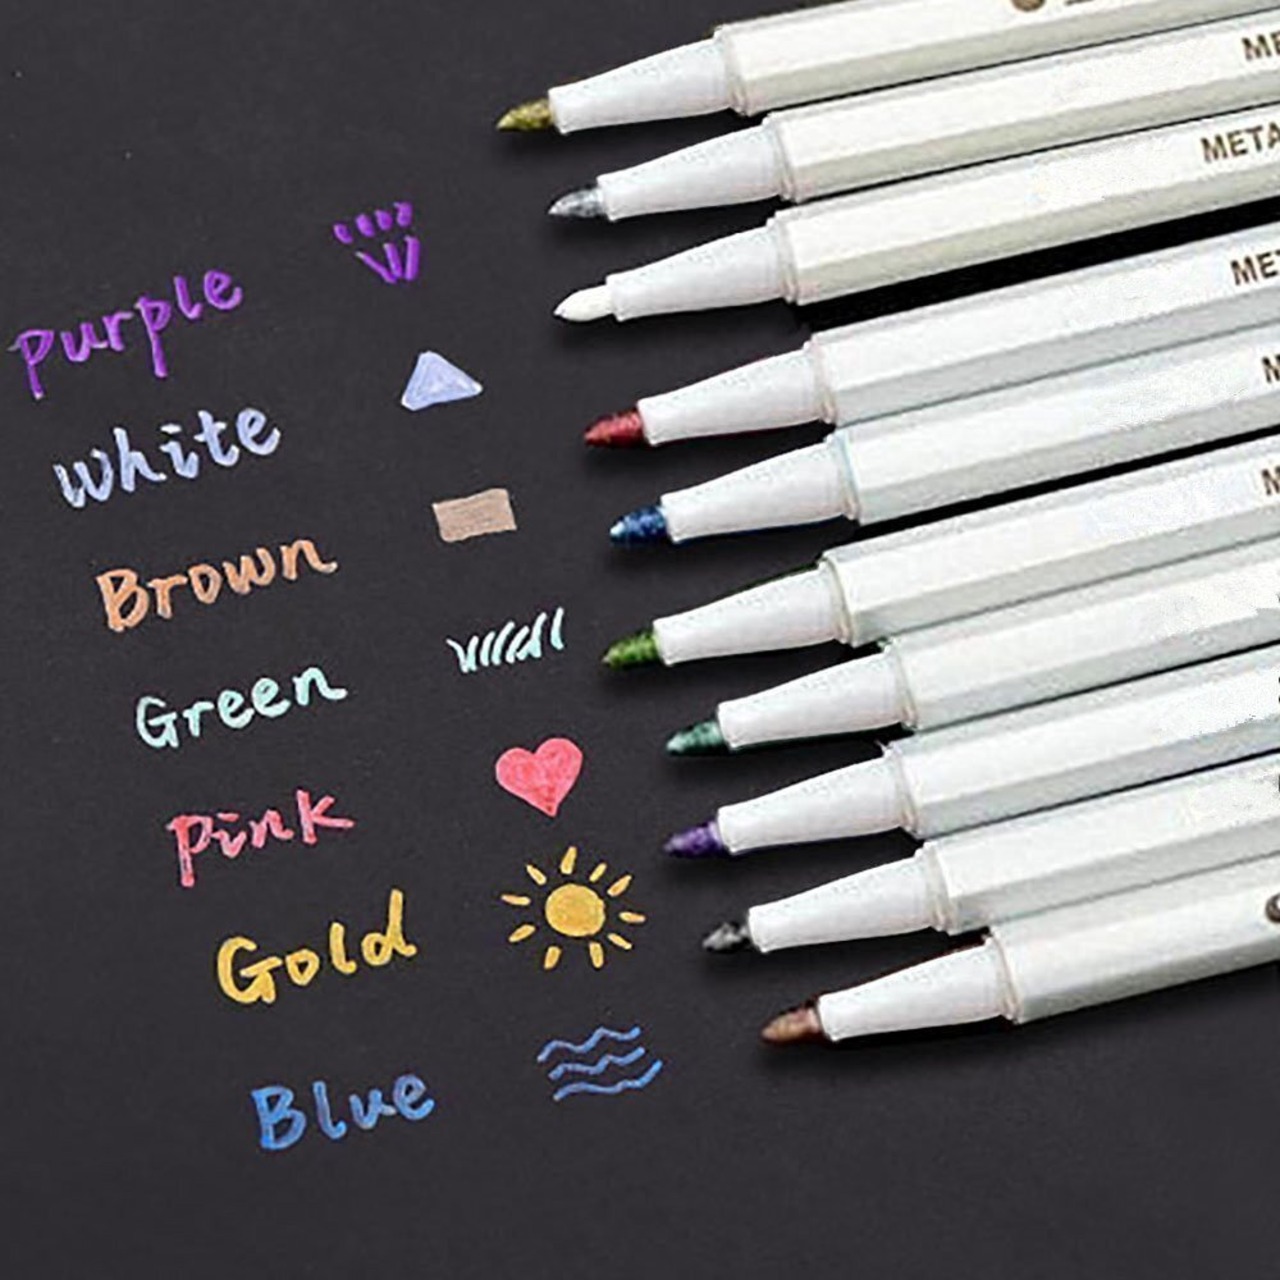 purple
white
Brown
Green
pink
Gold
Blue
META
MET